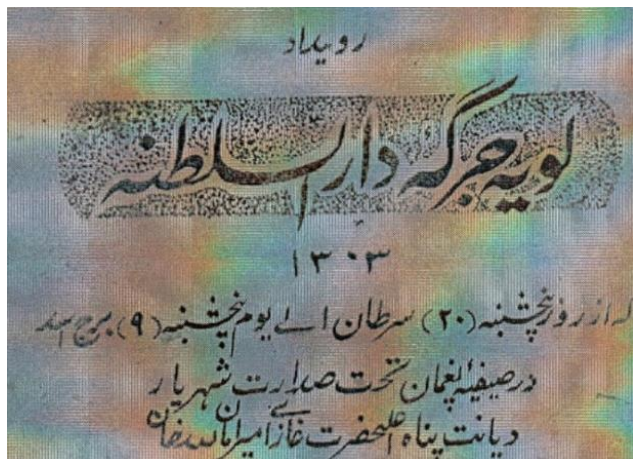 رویداد
لویه جرگه دارالسلطنه
۱۳۰۳
که از روز پنجشنبه (۲۰) سرطان الے یوم پنجشنبه (۹) برج اسد
در صیفیهٔ پغمان تحت صدارت شهریار
دیانت پناه اعلیحضرت غازے امیر امان الله خان